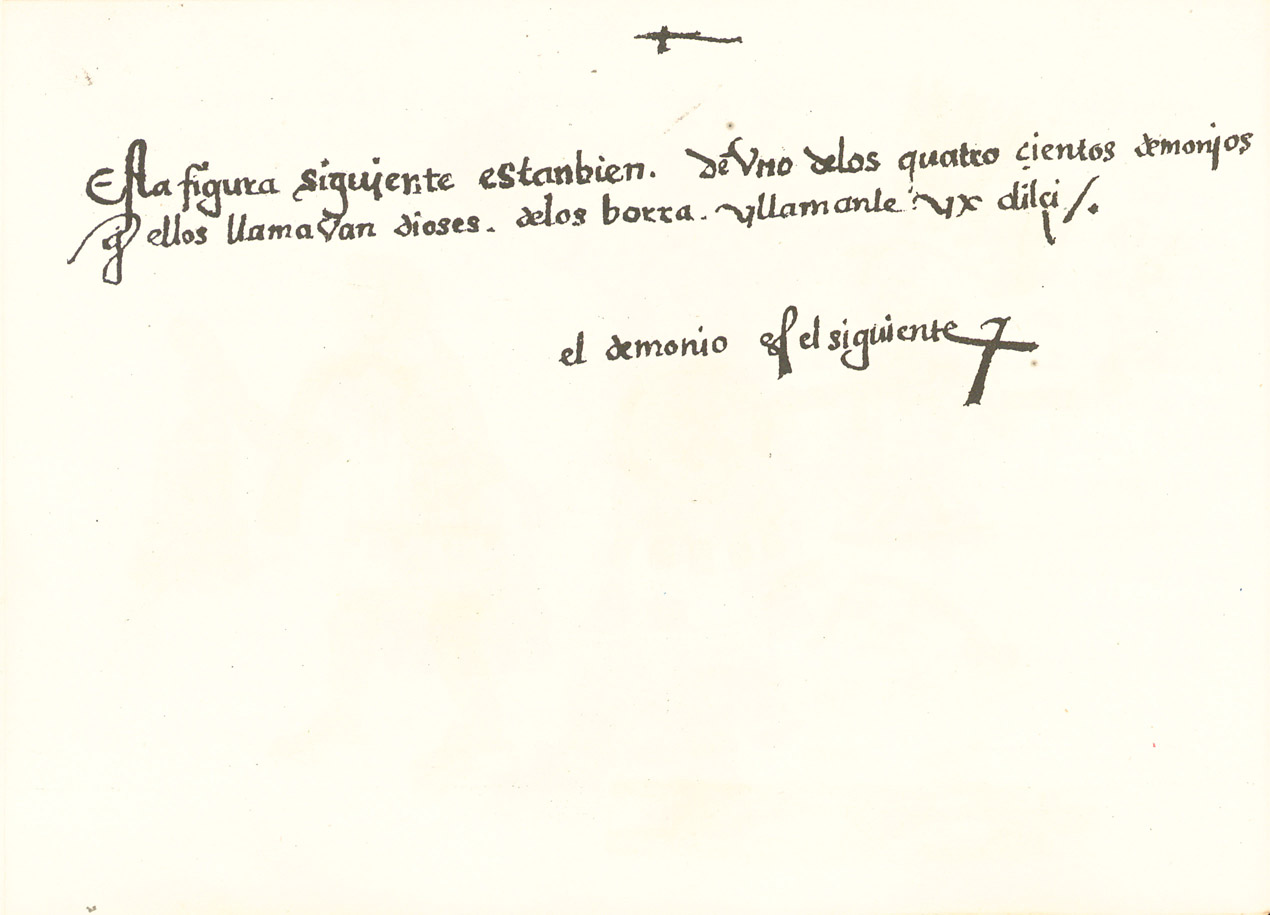 Esta figura siguiente estanbien. de Vno delos quatro çientos demonjos
q̃ ellos llamaVan dioses. delos borra. yllamanle yx dilçi /.
el demonio es el siguiente